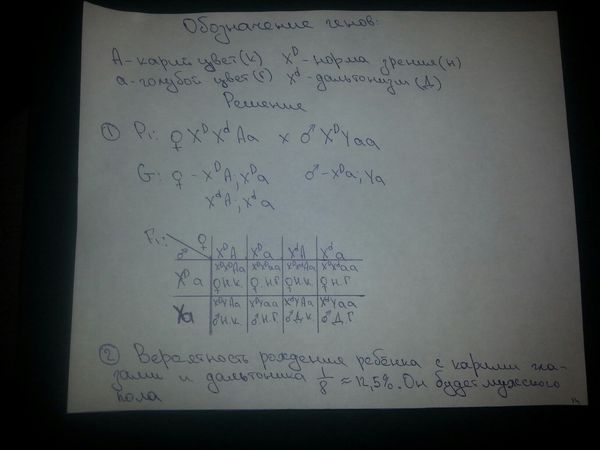 Обозначение генов:
А - карий цвет (к) Xᴰ - норма зрения (н)
а - голубой цвет (г) Xᵈ - дальтонизм (Д)
Решение
① P₁: ♀ XᴰXᵈAa × ♂ XᴰYaa
G: ♀ - XᴰA; Xᴰa ♂ - Xᴰa; Ya
XᵈA; Xᵈa
F₁: ♀
♂ XᴰA Xᴰa XᵈA Xᵈa
XᴰXᴰAa XᴰXᴰaa XᴰXᵈAa XᴰXᵈaa
Xᴰa ♀Н.К. ♀Н.Г. ♀Н.К. ♀Н.Г.
XᴰYAa XᴰYaa XᵈYAa XᵈYaa
Ya ♂Н.К. ♂Н.Г. ♂Д.К. ♂Д.Г.
② Вероятность рождения ребёнка с карими гла-
зами и дальтоника 1/8 ≈ 12,5%. Он будет мужского
пола